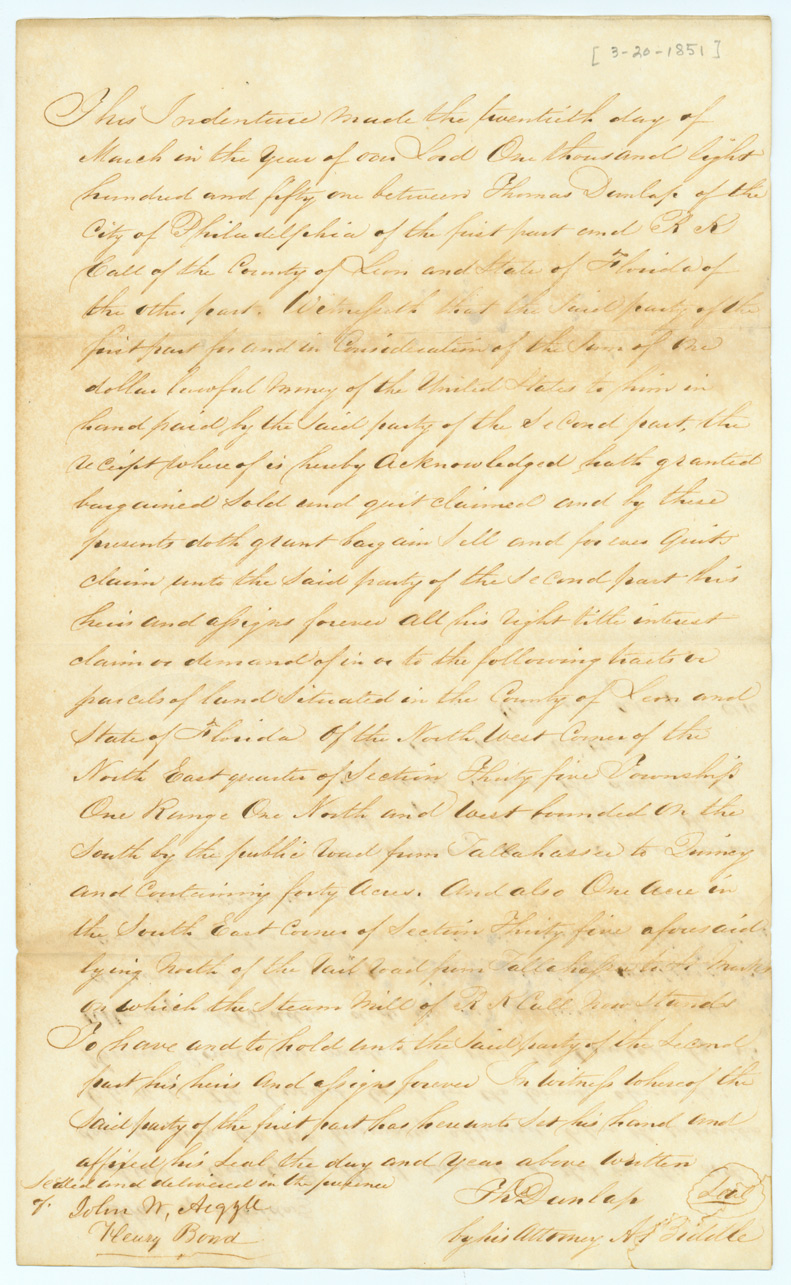 [3-20-1851]
This Indenture made the twentieth day of
March in the Year of our Lord One thousand Eight
hundred and fifty one between Thomas Dunlap of the
City of Philadelphia of the first part and R K
Call of the County of Leon and State of Florida of
the other part. Witnesseth that the Said party of the
first part for and in Consideration of the Sum of One
dollar lawful Money of the United States to him in
hand paid by the Said party of the Second part, the
receipt whereof is hereby Acknowledged hath granted
bargained Sold and quit claimed and by these
presents doth grant bargain Sell and forever Quit
claim unto the Said party of the Second part his
heirs and assigns forever all his right title interest
claim or demand of in or to the following tracts or
parcels of land Situated in the County of Leon and
State of Florida Of the North West Corner of the
North East quarter of Section Thirty five Township
One Range One North and West bounded on the
South by the public road from Tallahassee to Quincy
and Containing forty Acres. And also One Acre in
the South East Corner of Section Thirty five aforesaid
lying North of the rail road from Tallahassee to St Marks
on which the Steam Mill of R K Call Now Stands
To have and to hold unto the Said party of the Second
part his heirs and assigns forever In witness whereof the
Said party of the first part has hereunto Set his hand and
affixed his Seal the day and Year above written
Sealed and delivered in the presence
of
John W. Argyll
Henry Bond
Th Dunlap
Seal
by his Attorney A Biddle